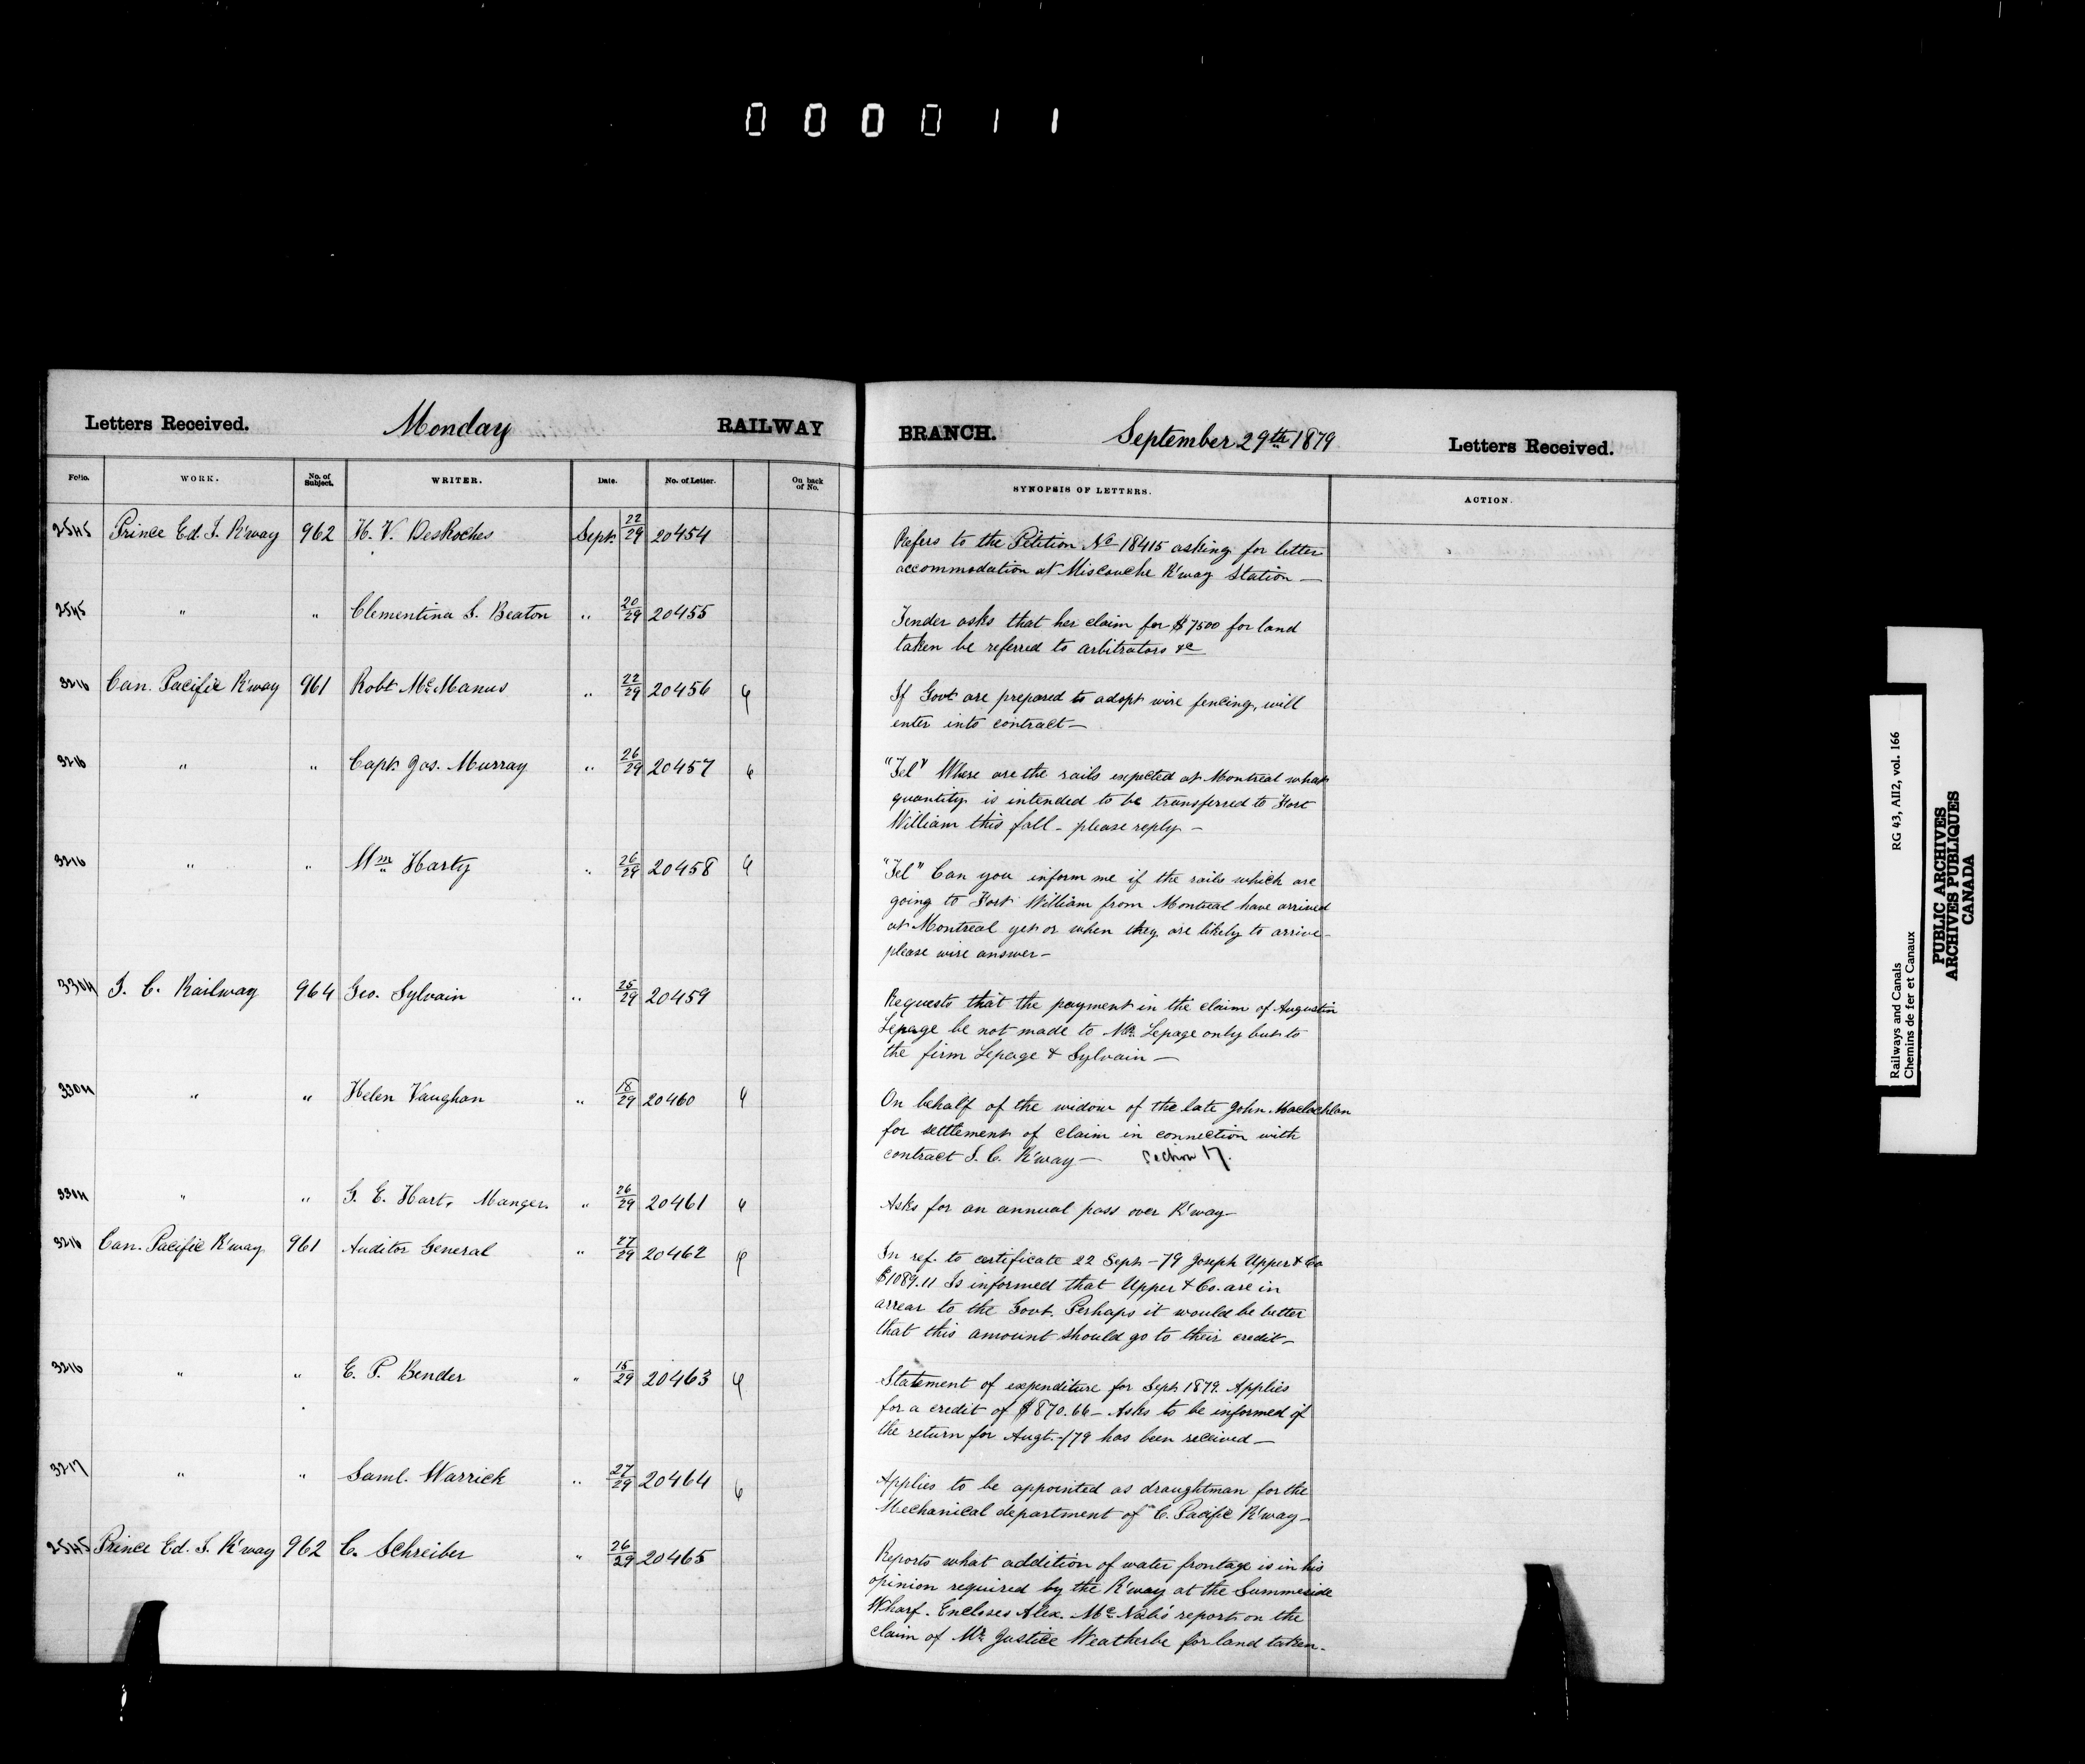 000011
Letters Received. Monday RAILWAY BRANCH. September 29th 1879 Letters Received.
Folio. WORK. No. of Subject. WRITER. Date. No. of Letter. On back of No. SYNOPSIS OF LETTERS. ACTION.
2545 Prince Ed. I. R'way 962 H. V. DesRoches Sept. 22/29 20454 Refers to the Petition No 18415 asking for better
accommodation at Miscouche R'way Station —
2545 " " Clementina S. Beaton " 20/29 20455 Tender asks that her claim for $7500 for land
taken be referred to arbitrators &c
3216 Can. Pacific R'way 961 Robt McManus " 22/29 20456 If Govt are prepared to adopt wire fencing, will
enter into contract —
3216 " " Capt. Jas. Murray " 26/29 20457 "Tel" Where are the rails expected at Montreal what
quantity is intended to be transferred to Fort
William this fall - please reply —
3216 " " Wm Harty " 26/29 20458 "Tel" Can you inform me if the rails which are
going to Fort William from Montreal have arrived
at Montreal yet or when they are likely to arrive -
please wire answer —
3304 I. C. Railway 964 Geo. Sylvain " 25/29 20459 Requests that the payment in the claim of Augustin
Lepage be not made to Mr. Lepage only but to
the firm Lepage & Sylvain —
3304 " " Helen Vaughan " 18/29 20460 On behalf of the widow of the late John Maclachlan
for settlement of claim in connection with
contract I. C. R'way — Section 17.
3304 " " G. E. Hart, Manger. " 26/29 20461 Asks for an annual pass over R'way —
3216 Can. Pacific R'way 961 Auditor General " 27/29 20462 In ref. to certificate 22 Sept -79 Joseph Upper & Co
$1089.11 Is informed that Upper & Co. are in
arrear to the Govt. Perhaps it would be better
that this amount should go to their credit —
3216 " " E. P. Bender " 15/29 20463 Statement of expenditure for Sept 1879. Applies
for a credit of $870.66 — Asks to be informed if
the return for Augt. -/79 has been received —
3217 " " Saml. Warrick " 27/29 20464 Applies to be appointed as draughtman for the
Mechanical department of C. Pacific R'way —
2545 Prince Ed. I. R'way 962 C. Schreiber " 26/29 20465 Reports what addition of water frontage is in his
opinion required by the R'way at the Summerside
Wharf. Encloses Alex. McNab's report on the
claim of Mr Justice Weatherbe for land taken.
Railways and Canals RG 43, AII2, vol. 166
Chemins de fer et Canaux
PUBLIC ARCHIVES
ARCHIVES PUBLIQUES
CANADA